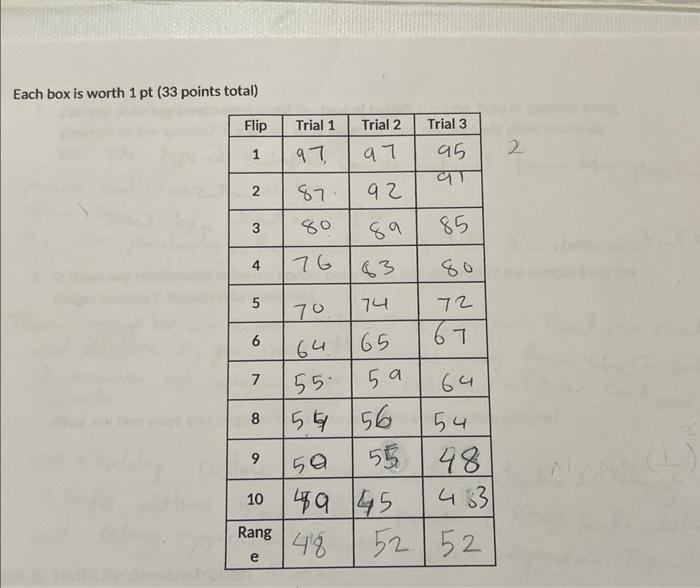 Each box is worth 1 pt (33 points total)
Flip Trial 1 Trial 2 Trial 3
1 97 97 95 2
2 87 92 91
3 80 89 85
4 76 83 80
5 70 74 72
6 64 65 67
7 55 59 64
8 54 56 54
9 50 55 48
10 49 45 43
Rang
e 48 52 52